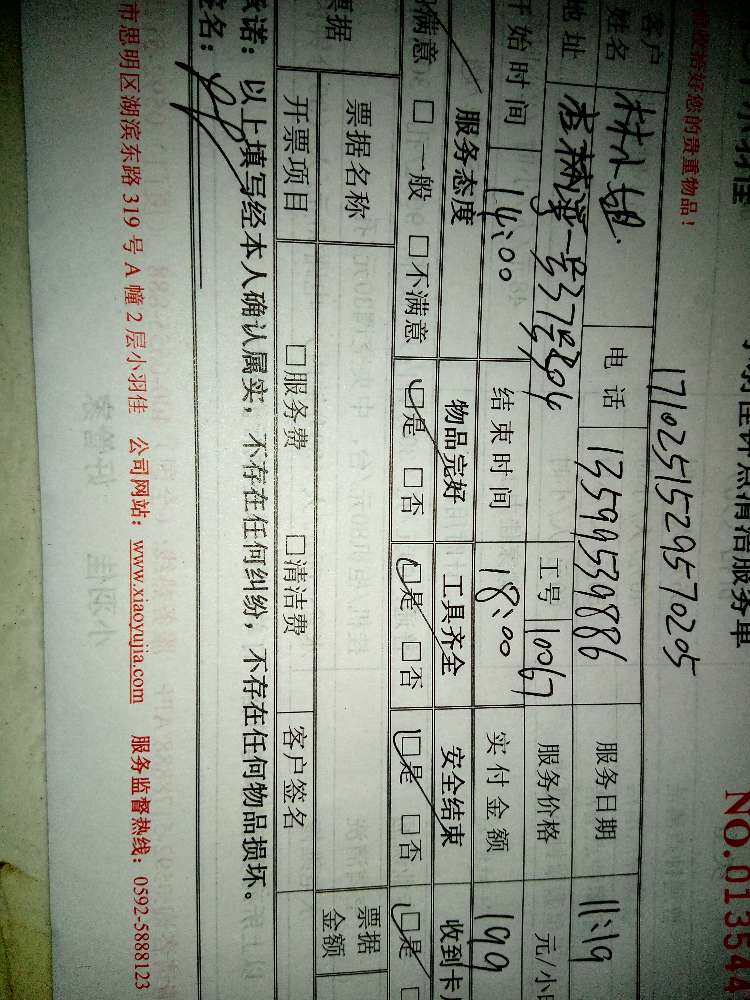 点清洁服务单 NO.013544
收拾好您的贵重物品！ 17102515295​70205
客户姓名 林小姐 电话 13599539886 服务日期 11:19
地址 号37号804 工号 10067 服务价格 元/小
开始时间 14:00 结束时间 18:00 实付金额 199
服务态度 物品完好 工具齐全 安全结束 收到卡
满意 □一般 □不满意 □是 □否 □是 □否 □是 □否 □是
票据 票据名称 票据金额
开票项目 □服务费 □清洁费 客户签名
承诺：以上填写经本人确认属实，不存在任何纠纷，不存在任何物品损坏。
签名：
市思明区湖滨东路319号A幢2层小羽佳 公司网站：www.xiaoyujia.com 服务监督热线：0592-5888123